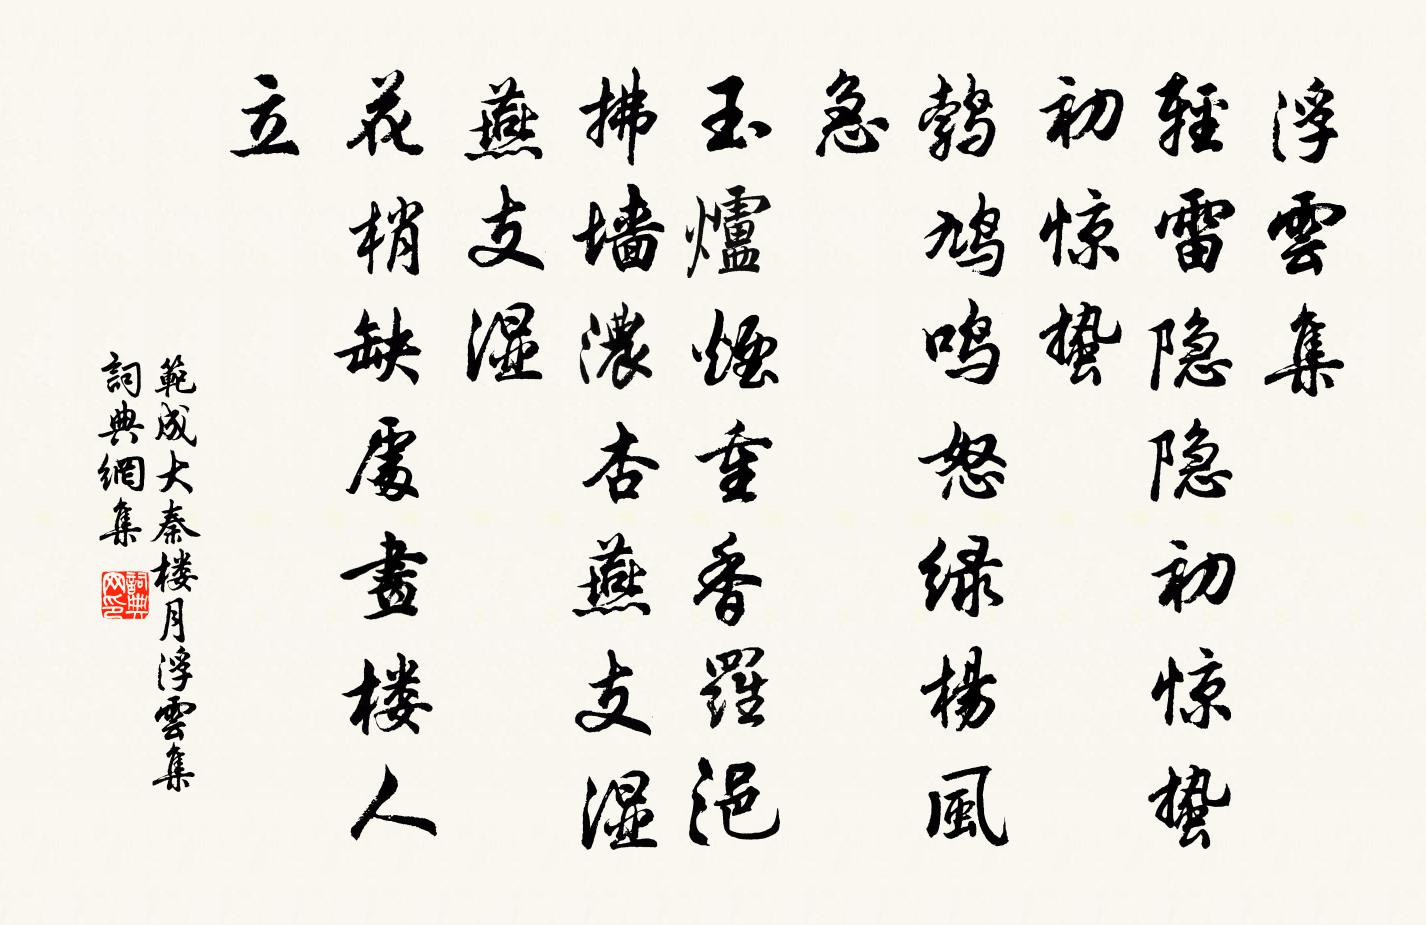 浮雲集
輕雷隐隐初惊蛰
初惊蛰
鹁鸠鸣怒绿楊風
急
玉爐煙重香羅浥
拂墙濃杏燕支湿
燕支湿
花梢缺處畫楼人
立
範成大秦楼月浮雲集
詞典網集
詞典网印